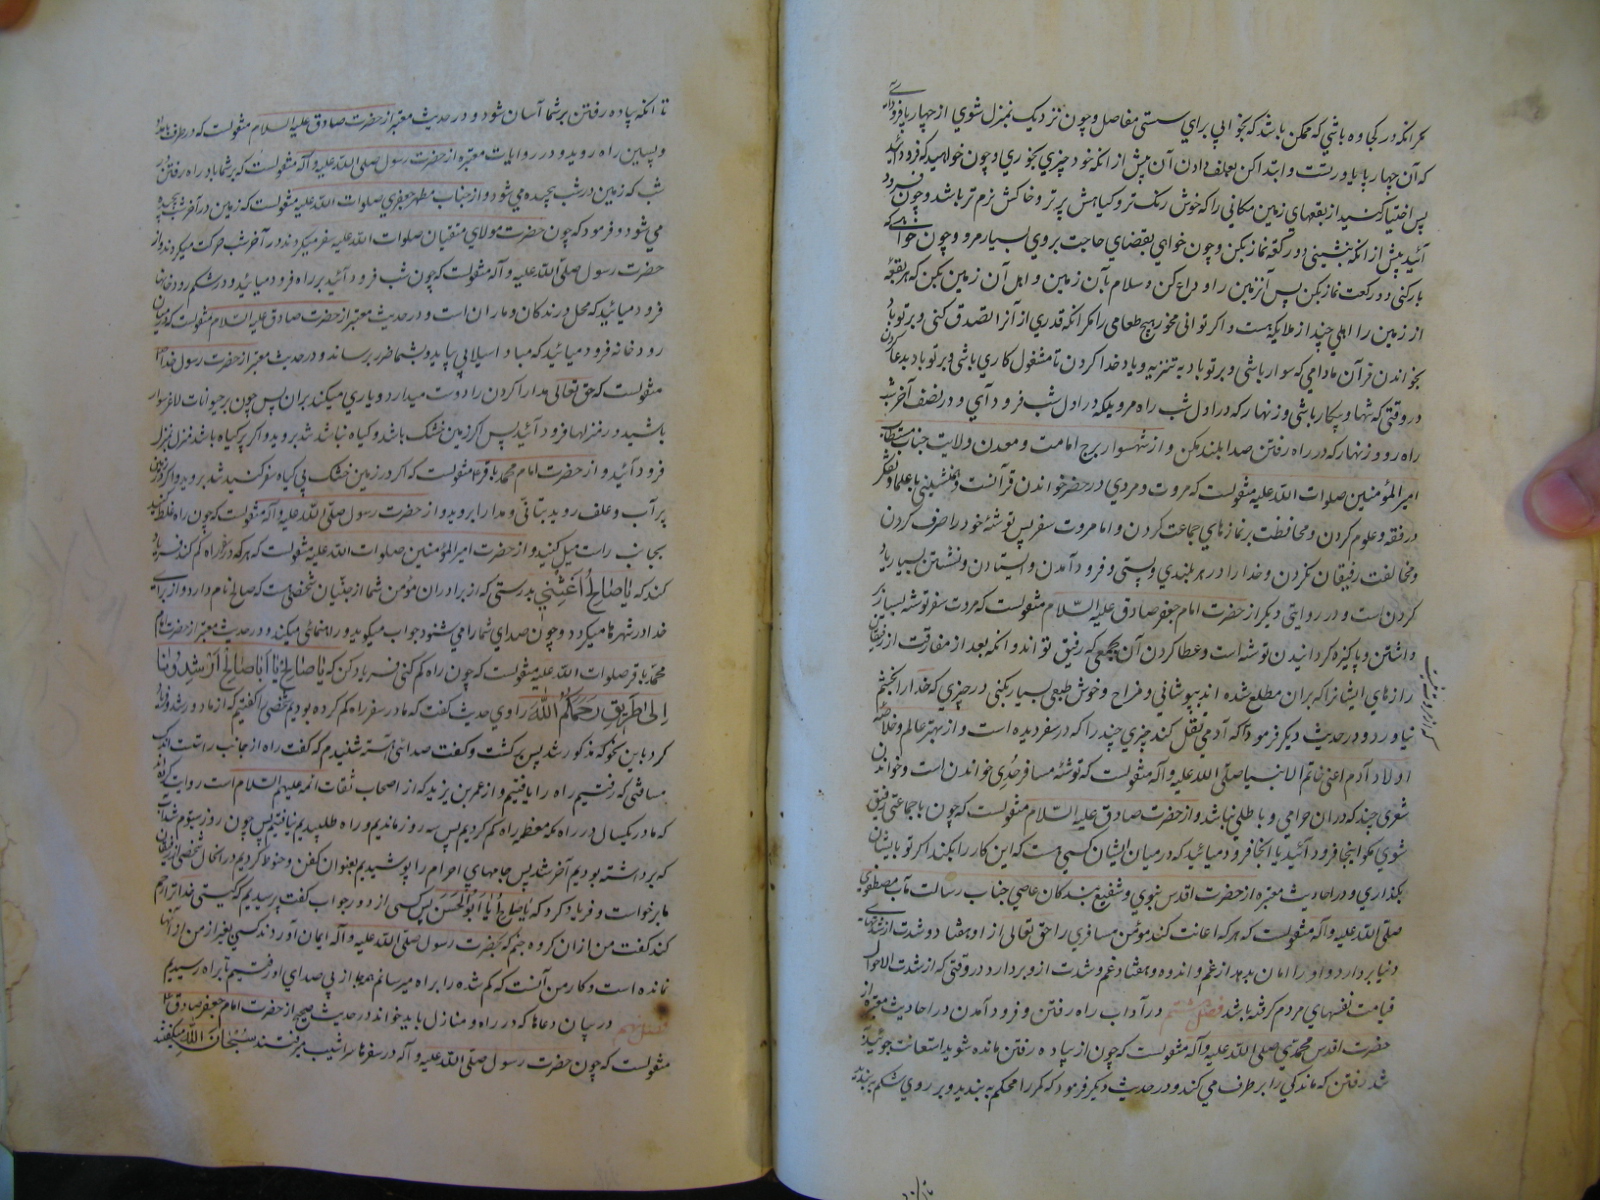 مگر انکه در کجاوه باشي که ممکن باشد که بخوابي براي سستي مفاصل و چون نزدیک بمنزل شوي از چهارپا فرود اي
که آن چهارپا یاور تست و ابتدا کن بعلف دادن آن پیش از انکه خود چیزي بخوري و چون خواهید که فرود آئید
پس اختیار کنید از بقعهاي زمین مکاني را که خوش رنک تر و کیاهش پر تر و خاکش نرم تر باشد و چون فرود
آئید پیش از انکه بنشیني دو رکعة نماز بکن و چون خواهي بقضاي حاجت بروي بسیار مرو و چون خواهي که
بار کني دو رکعت نماز بکن پس آن زمین را وداع کن و سلام بآن زمین و اهل آن زمین بکن که هر بقعهٔ
از زمین را اهلي چند از ملایکه هست و اکر تواني مخور هیچ طعامي را مکر انکه قدري از آنرا تصدق کني و بر تو باد
بخواندن قرآن مادامي که سوار باشي و بر تو باد به تنزیه و یاد خدا کردن تا مشغول کاري باشي و بر تو باد بدعا کردن
در وقتي که تنها و بیکار باشي و زنهار که در اول شب راه مرو بلکه در اول شب فرود آي و در نصف آخر شب
راه رو و زنهار که در راه رفتن صدا بلند مکن و از شهسوار برج امامت و معدن ولایت جناب مستطاب
امیر المؤمنین صلوات الله علیه منقولست که مروت و مردي در حضر خواندن قرآنست و همنشیني با علما و تفکر
در فقه و علوم کردن و محافظت بر نمازهاي جماعت کردن و اما مروت سفر پس توشهٔ خود را صرف کردن
و مخالفت رفیقان نکردن و خدا را در هر بلندي و پستي و فرود آمدن و ایستادن و نشستن بسیار یاد
کردن است و در روایتي دیکر از حضرت امام جعفر صادق علیه السّلام منقولست که مروت سفر توشه بسیار
داشتن و پاکیزه کردانیدن توشه است و عطا کردن آن بجمعي که رفیق تواند و انکه بعد از مفارقت از رفیقان
رازهاي ایشان را که بران مطلع شده اند بپوشاني و مزاح و خوش طبعي بسیار بکني در چیزي که خدا را بخشم
نیاورد و در حدیث دیکر فرمود که آدمي نقل کند چیزي چند را که در سفر دیده است و از بهتر عالم و خلاصهٔ
اولاد آدم اعني خاتم الانبیا صلي الله علیه و آله منقولست که توشهٔ مسافر حدي خواندن است و خواندن
شعري چند که دران حرامي و باطلي نباشد و از حضرت صادق علیه السلام منقولست که چون با جماعتي رفیق
شوي مکو اینجا فرود آئید یا انجا فرود میائید که در میان ایشان کسي هست که این کار را بکند اکر تو بایشان
بکذاري و در احادیث معتبره از حضرت اقدس نبوي و شفیع بندکان عاصي جناب رسالت مآب مصطفوي
صلّي الله علیه و آله منقولست که هر که اعانت کند مؤمن مسافري را حق تعالي از او هفتاد و شدت از شدتهاي
دنیا بردارد و او را امان بدهد از غم و اندوه و هفتاد غم و شدت از و بردارد در وقتي که از شدت الاحوال
قیامت نفسهاي مردم کرفته باشد فصل هشتم در آداب راه رفتن و فرود آمدن در احادیث معتبره از
حضرت اقدس محمدي صلي الله علیه و آله منقولست که چون از پیاده رفتن مانده شوید استعانت جوئید به
تند رفتن که ماندکي را برطرف مي کند و در حدیث دیکر فرمود که کمر را محکم به بندید و بر روي شکم به بندید
تا انکه پیاده رفتن بر شما آسان شود و در حدیث معتبر از حضرت صادق علیه السلام منقولست که در طرف بامداد
و پسین راه روید و در روایات معتبره از حضرت رسول صلي الله علیه و آله منقولست که بر شما باد راه رفتن در
شب که زمین در شب پیچیده مي شود و از جناب مطهر جعفري صلوات الله علیه منقولست که زمین در آخر شب پیچیده
مي شود و فرمود که چون حضرت مولاي متقیان صلوات الله علیه سفر میکردند در آخر شب حرکت میکردند و از
حضرت رسول صلي الله علیه و آله منقولست که چون شب فرود آئید بر راه فرود میائید و در شکم رودخانها
فرود میائید که محل درندکان و ماران است و در حدیث معتبر از حضرت صادق علیه السلام منقولست که در میان
رودخانه فرود میائید که مبادا سیلابي بیاید و بشما ضرر برساند و در حدیث معتبر از حضرت رسول خدا
منقولست که حق تعالي مدارا کردن را دوست میدارد و یاري میکند بران پس چون بر حیوانات لاغر سوار
باشید در منزلها فرود آئید پس اکر زمین خشک باشد و کیاه نباشد تند بروید و اکر پر کیاه باشد منزل بمنزل
فرود آئید و از حضرت امام محمد باقر ع منقولست که اکر در زمین خشک بي کیاه سفر کنید تند بروید و اکر در زمین
پر آب و علف روید بتاني و مدارا بروید و از حضرت رسول صلّي الله علیه و آله منقولست که چون راه غلط کنید
بجانب راست میل کنید و از حضرت امیر المؤمنین صلوات الله علیه منقولست که هر که در سفر راه کم کند فریاد
کند که یا صالِحُ اَغِثْني بدرستي که از برادران مؤمن شما از جنّیان شخصي هست که صالح نام دارد و از براي
خدا در شهرها میکردد و چون صداي شما را مي شنود جواب میکوید و راهنمائي میکند و در حدیث معتبر از حضرت امام
محمّد باقر صلوات الله علیه منقولست که چون راه کم کني فریاد کن که یا صالِحُ یا اَبا صالِحٍ اَرْشِدونا
اِلَی الطَّریقِ رَحِمَکُمُ اللهُ راوي حدیث کفت که ما در سفر راه کم کرده بودیم شخصي را کفتیم که از ما دور شد و فریاد
کرد باین نحو که مذکور شد پس برکشت و کفت صدائي آهسته شنیدم که کفت راه از جانب راست است اندک
مسافتي که رفتیم راه را یافتیم و از عمر بن یزید که از اصحاب ثقات ائمه علیهم السلام است روایت کرده
که ما در یکسال در راه مکه معظمه راه کم کردیم پس سه روز ماندیم و راه طلبیدیم نیافتیم پس چون روز سیوم شد آب
که برداشته بودیم آخر شد پس جامهاي احرام را پوشیدیم بعنوان کفن و حنوط کردیم در انحال شخصي از رفیقان
ما برخواست و فریاد کرد که یا صالح یا اَبَا الحَسَن پس کسي از دور جواب کفت پرسیدیم که کیستي خدا ترا رحم
کند کفت من ازان کروه جنّم که بحضرت رسول صلّي الله علیه و آله ایمان آوردند کسي بغیر از من از آنها
نمانده است و کار من آنست که کم شده را براه میرسانم همه جا از پي صداي او رفتیم تا براه رسیدیم
فصل نهم در بیان دعاها که در راه و منازل باید خواند در حدیث صحیح از حضرت امام جعفر صادق ع
منقولست که چون حضرت رسول صلي الله علیه و آله در سفرها سراشیب میرفتند سُبْحانَ اللهِ میکفتند